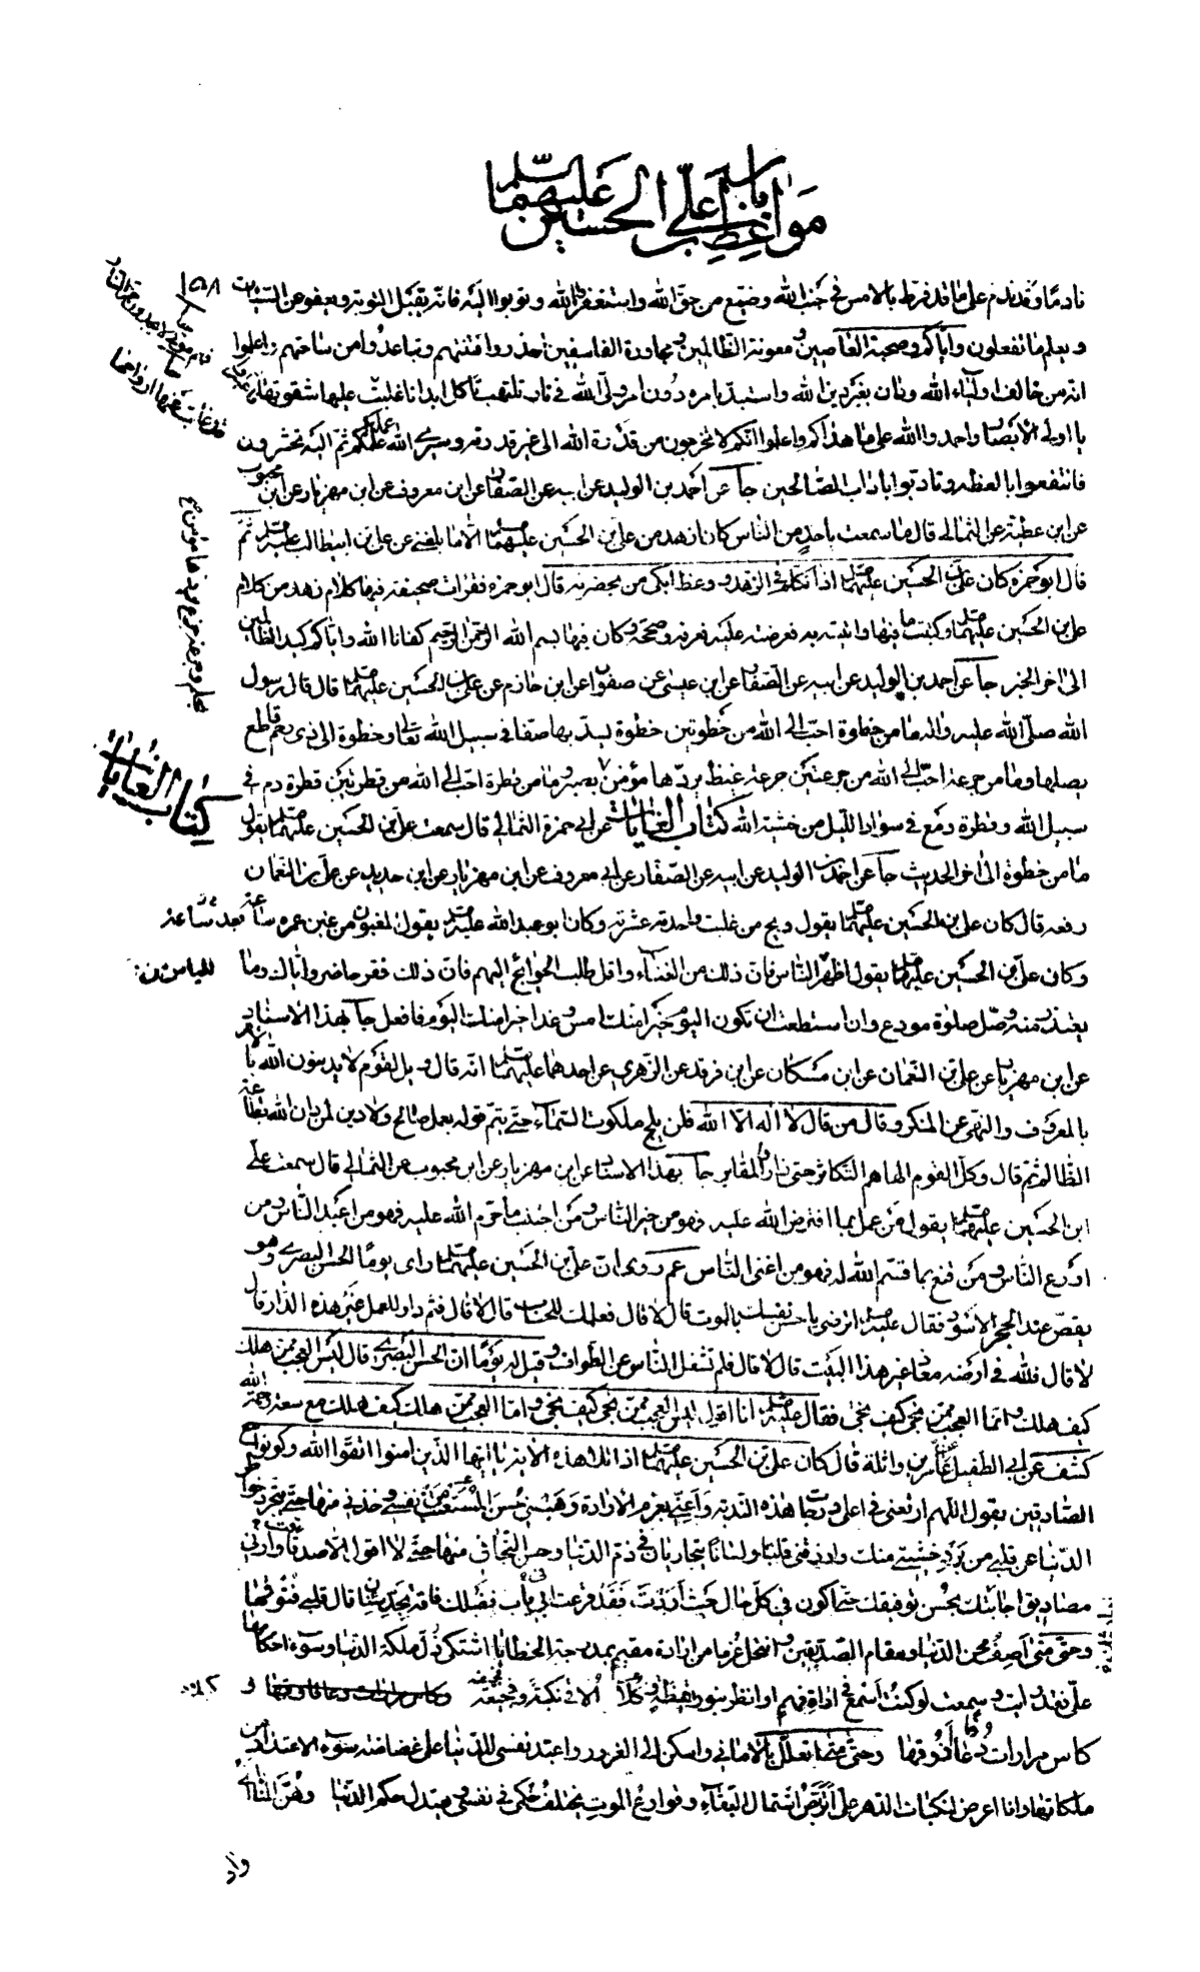 باب
مواعظ علي بن الحسين عليهما السلم
نادما وقد ندم على ما قد فرط بالامس في جنب الله وضيع من حق الله واستغفروا الله وتوبوا اليه فانه يقبل التوبة ويعفو عن السيئات
ويعلم ما تفعلون واياكم وصحبة العاصين ومعونة الظالمين ومجاورة الفاسقين احذروا فتنتهم وتباعدوا من ساحتهم واعلموا
انه من خالف اولياء الله ودان بغير دين الله واستبد بامره دون امر ولي الله في نار تلتهب تاكل ابدانا غلبت عليها شقوتها فاعتبروا
يا اولي الابصار واحمدوا الله على ما هداكم واعلموا انكم لا تخرجون من قدرة الله الى غير قدرته وسيرى الله عملكم ثم اليه تحشرون
فانتفعوا بالعظة وتادبوا باداب الصالحين جا عن احمد بن الوليد عن ابيه عن الصفار عن ابن معروف عن ابن مهزيار عن ابن محبوب
عن ابن عطية عن الثمالي قال ما سمعت باحد من الناس كان ازهد من علي بن الحسين عليهما السلم الا ما بلغني عن علي بن ابيطالب عليه السلم ثم
قال ابو حمزة كان علي بن الحسين عليهما السلم اذا تكلم في الزهد ووعظ ابكى من بحضرته قال ابو حمزة فقرات صحيفة فيها كلام زهد من كلام
علي بن الحسين عليهما السلم وكتبت ما فيها واتيته به فعرضته عليه فعرفه وصححه وكان فيها بسم الله الرحمن الرحيم كفانا الله واياكم كيد الظالمين
الى اخر الخبر جا عن احمد بن الوليد عن ابيه عن الصفار عن ابن عيسى عن صفوان عن ابن حازم عن علي بن الحسين عليهما السلم قال قال رسول
الله صلى الله عليه واله ما من خطوة احب الى الله من خطوتين خطوة يسد بها صفا في سبيل الله تعالى وخطوة الى ذي رحم قاطع
يصلها وما من جرعة احب الى الله من جرعتين جرعة غيظ يردها مؤمن بصبر وما من قطرة احب الى الله من قطرتين قطرة دم في
سبيل الله وقطرة دمع في سواد الليل من خشية الله كتاب الغايات عن ابي حمزة الثمالي قال سمعت علي بن الحسين عليهما السلم يقول
ما من خطوة الى اخر الحديث جا عن احمد بن الوليد عن ابيه عن الصفار عن ابن معروف عن ابن مهزيار عن ابن حديد عن علي بن النعمان
رفعه قال كان علي بن الحسين عليهما السلم يقول ويح من غلبت واحدته عشرته وكان ابو عبد الله عليه السلم يقول المغبون من غبن عمره ساعة بعد ساعة
وكان علي بن الحسين عليهما السلم يقول اظهر الياس من الناس فان ذلك من الغناء واقل طلب الحوائج اليهم فان ذلك فقر حاضر واياك وما
يعتذر منه وصل صلوة مودع وان استطعت ان تكون اليوم خيرا منك امس وغدا خيرا منك اليوم فافعل جا بهذا الاسناد
عن ابن مهزيار عن علي بن النعمان عن ابن مسكان عن ابن فرقد عن الزهري عن احدهما عليهما السلم انه قال ويل لقوم لا يدينون الله بالامر
بالمعروف والنهي عن المنكر وقال من قال لا اله الا الله فلن يلج ملكوت السماء حتى يتم قوله بعمل صالح ولا دين لمن دان الله بطاعة
الظالم ثم قال وكل القوم الهاهم التكاثر حتى زاروا المقابر جا بهذا الاسناد عن ابن مهزيار عن ابن محبوب عن الثمالي قال سمعت علي
ابن الحسين عليهما السلم يقول من عمل بما افترض الله عليه فهو من خير الناس ومن اجتنب ما حرم الله عليه فهو من اعبد الناس ومن
اورع الناس ومن قنع بما قسم الله له فهو من اغنى الناس عم روى ان علي بن الحسين عليهما السلم راى يوما الحسن البصري وهو
يقص عند الحجر الاسود فقال عليه السلم اترضى يا حسن نفسك للموت قال لا قال فعملك للحساب قال لا قال فثم دار للعمل غير هذه الدار قال
لا قال فلله في ارضه معاذ غير هذا البيت قال لا قال فلم تشغل الناس عن الطواف وقيل له يوما ان الحسن البصري قال ليس العجب ممن هلك
كيف هلك وانما العجب ممن نجى كيف نجى فقال عليه السلم انا اقول ليس العجب ممن نجى كيف نجى واما العجب ممن هلك كيف هلك مع سعة رحمة الله
كشف عن ابي الطفيل عامر بن واثلة قال كان علي بن الحسين عليهما السلم اذا تلا هذه الاية يا ايها الذين امنوا اتقوا الله وكونوا مع
الصادقين يقول اللهم ارفعني في اعلى درجات هذه الندبة واعني بعزم الارادة وهبني حسن المستعتب من نفسي وخذني منها حتى تتجرد خواطر
الدنيا عن قلبي من برد خشيتي منك وارزقني قلبا ولسانا يتجاريان في ذم الدنيا وحسن التجافي منها حتى لا اقول الا صدقت وارني
مصاديق اجابتك بحسن توفيقك حتى اكون في كل حال حيث اردت، فقد قرعت بي باب فضلك فاقة بحد سنان نال قلبي فتوقها
وحتى متى اصف محن الدنيا ومقام الصديقين وانتحل عزما من ارادة مقيم بمدرجة الخطايا اشتكي ذل ملكة الدنيا وسوء احكامها
علي فقد رايت وسمعت لو كنت اسمع في اداة فهم او انظر بنور يقظة وكلا الاقي نكبة وفجيعة و
كاس مرارات ذعافا اذوقها وحتى متى اتعلل بالاماني واسكن الى الغرور واعبد نفسي للدنيا على غضاضة سوء الاعتداد من
ملكاتها وانا اعرض لنكبات الدهر علي اتربص اشتمال البقاء وقوارع الموت تختلف حكمي في نفسي ويعتدل حكم الدنيا وهن المنايا
كتاب الغايات
واد